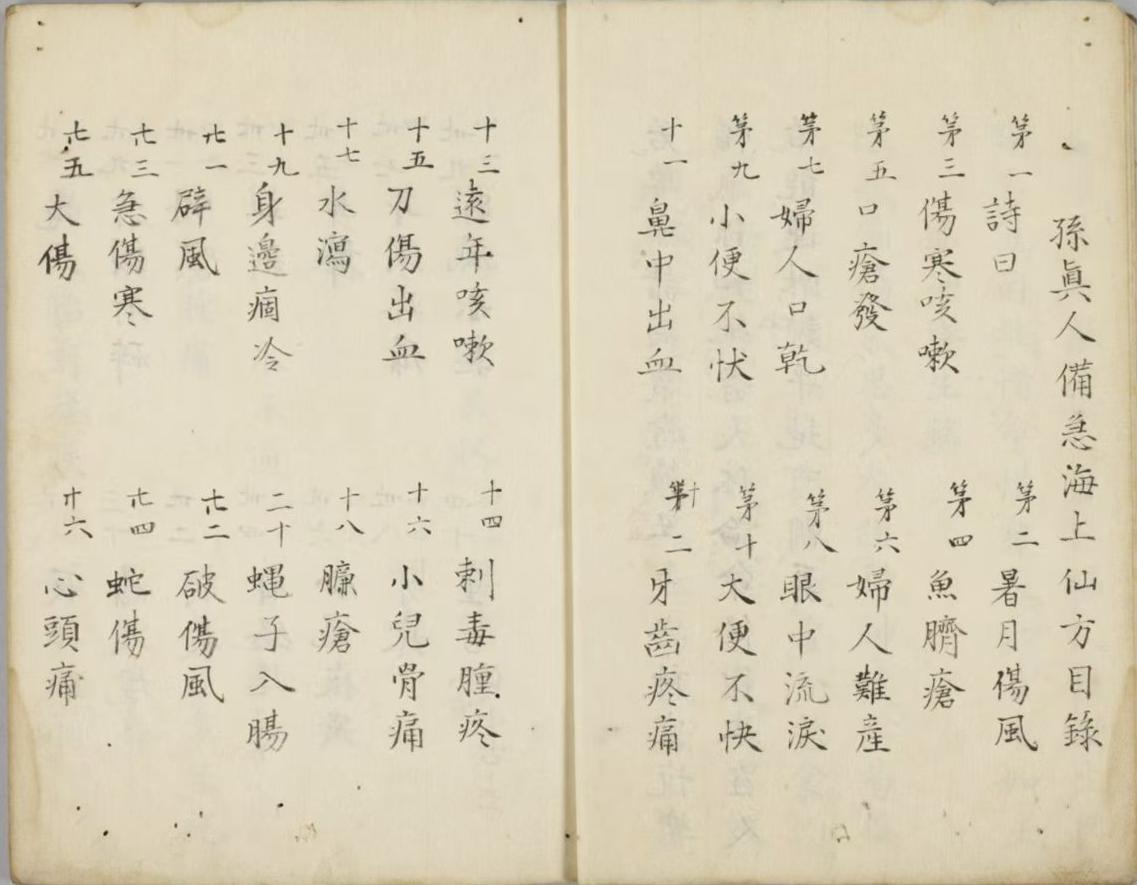 孫真人備急海上仙方目錄
第一詩曰 第二暑月傷風
第三傷寒咳嗽 第四魚臍瘡
第五口瘡發 第六婦人難産
第七婦人口乾 第八眼中流淚
第九小便不伏 第十大便不快
十一鼻中出血 第十二牙齒疼痛
十三遠年咳嗽 十四刺毒腫疼
十五刀傷出血 十六小兒骨痛
十七水瀉 十八臁瘡
十九身邊痼冷 二十蝇子入腸
廿一礔風 廿二破傷風
廿三急傷寒 廿四蛇傷
廿五大傷 廿六心頭痛